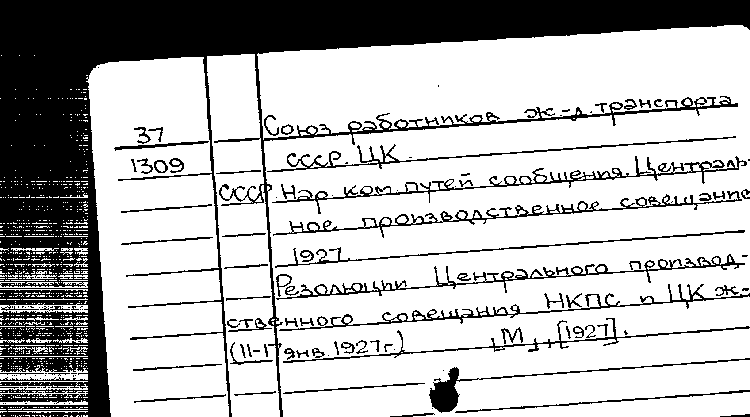 37 Союз работников ж-д. транспорта
1309 СССР. ЦК.
СССР. Нар. ком. путей сообщения. Централь-
ное производственное совещание
1927.
Резолюции Центрального производ-
ственного совещания НКПС и ЦК ж-
(11-17 янв. 1927г.) М., [1927].